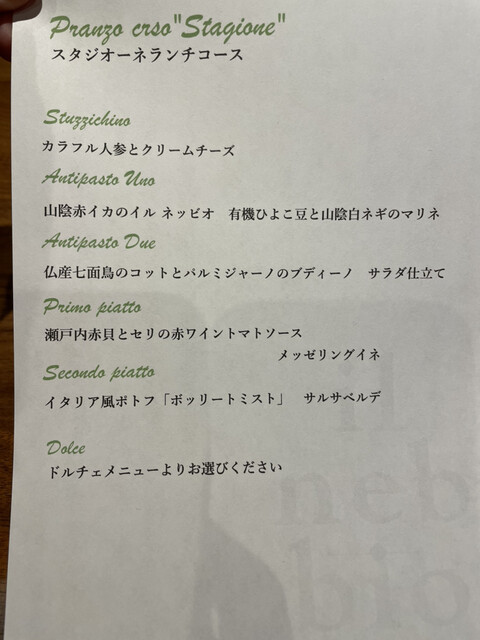 Pranzo crso"Stagione"
スタジオーネランチコース
Stuzzichino
カラフル人参とクリームチーズ
Antipasto Uno
山陰赤イカのイル ネッビオ　有機ひよこ豆と山陰白ネギのマリネ
Antipasto Due
仏産七面鳥のコットとパルミジャーノのブディーノ　サラダ仕立て
Primo piatto
瀬戸内赤貝とセリの赤ワイントマトソース
メッゼリングイネ
Secondo piatto
イタリア風ポトフ「ボッリートミスト」　サルサベルデ
Dolce
ドルチェメニューよりお選びください
Il
neb
bio